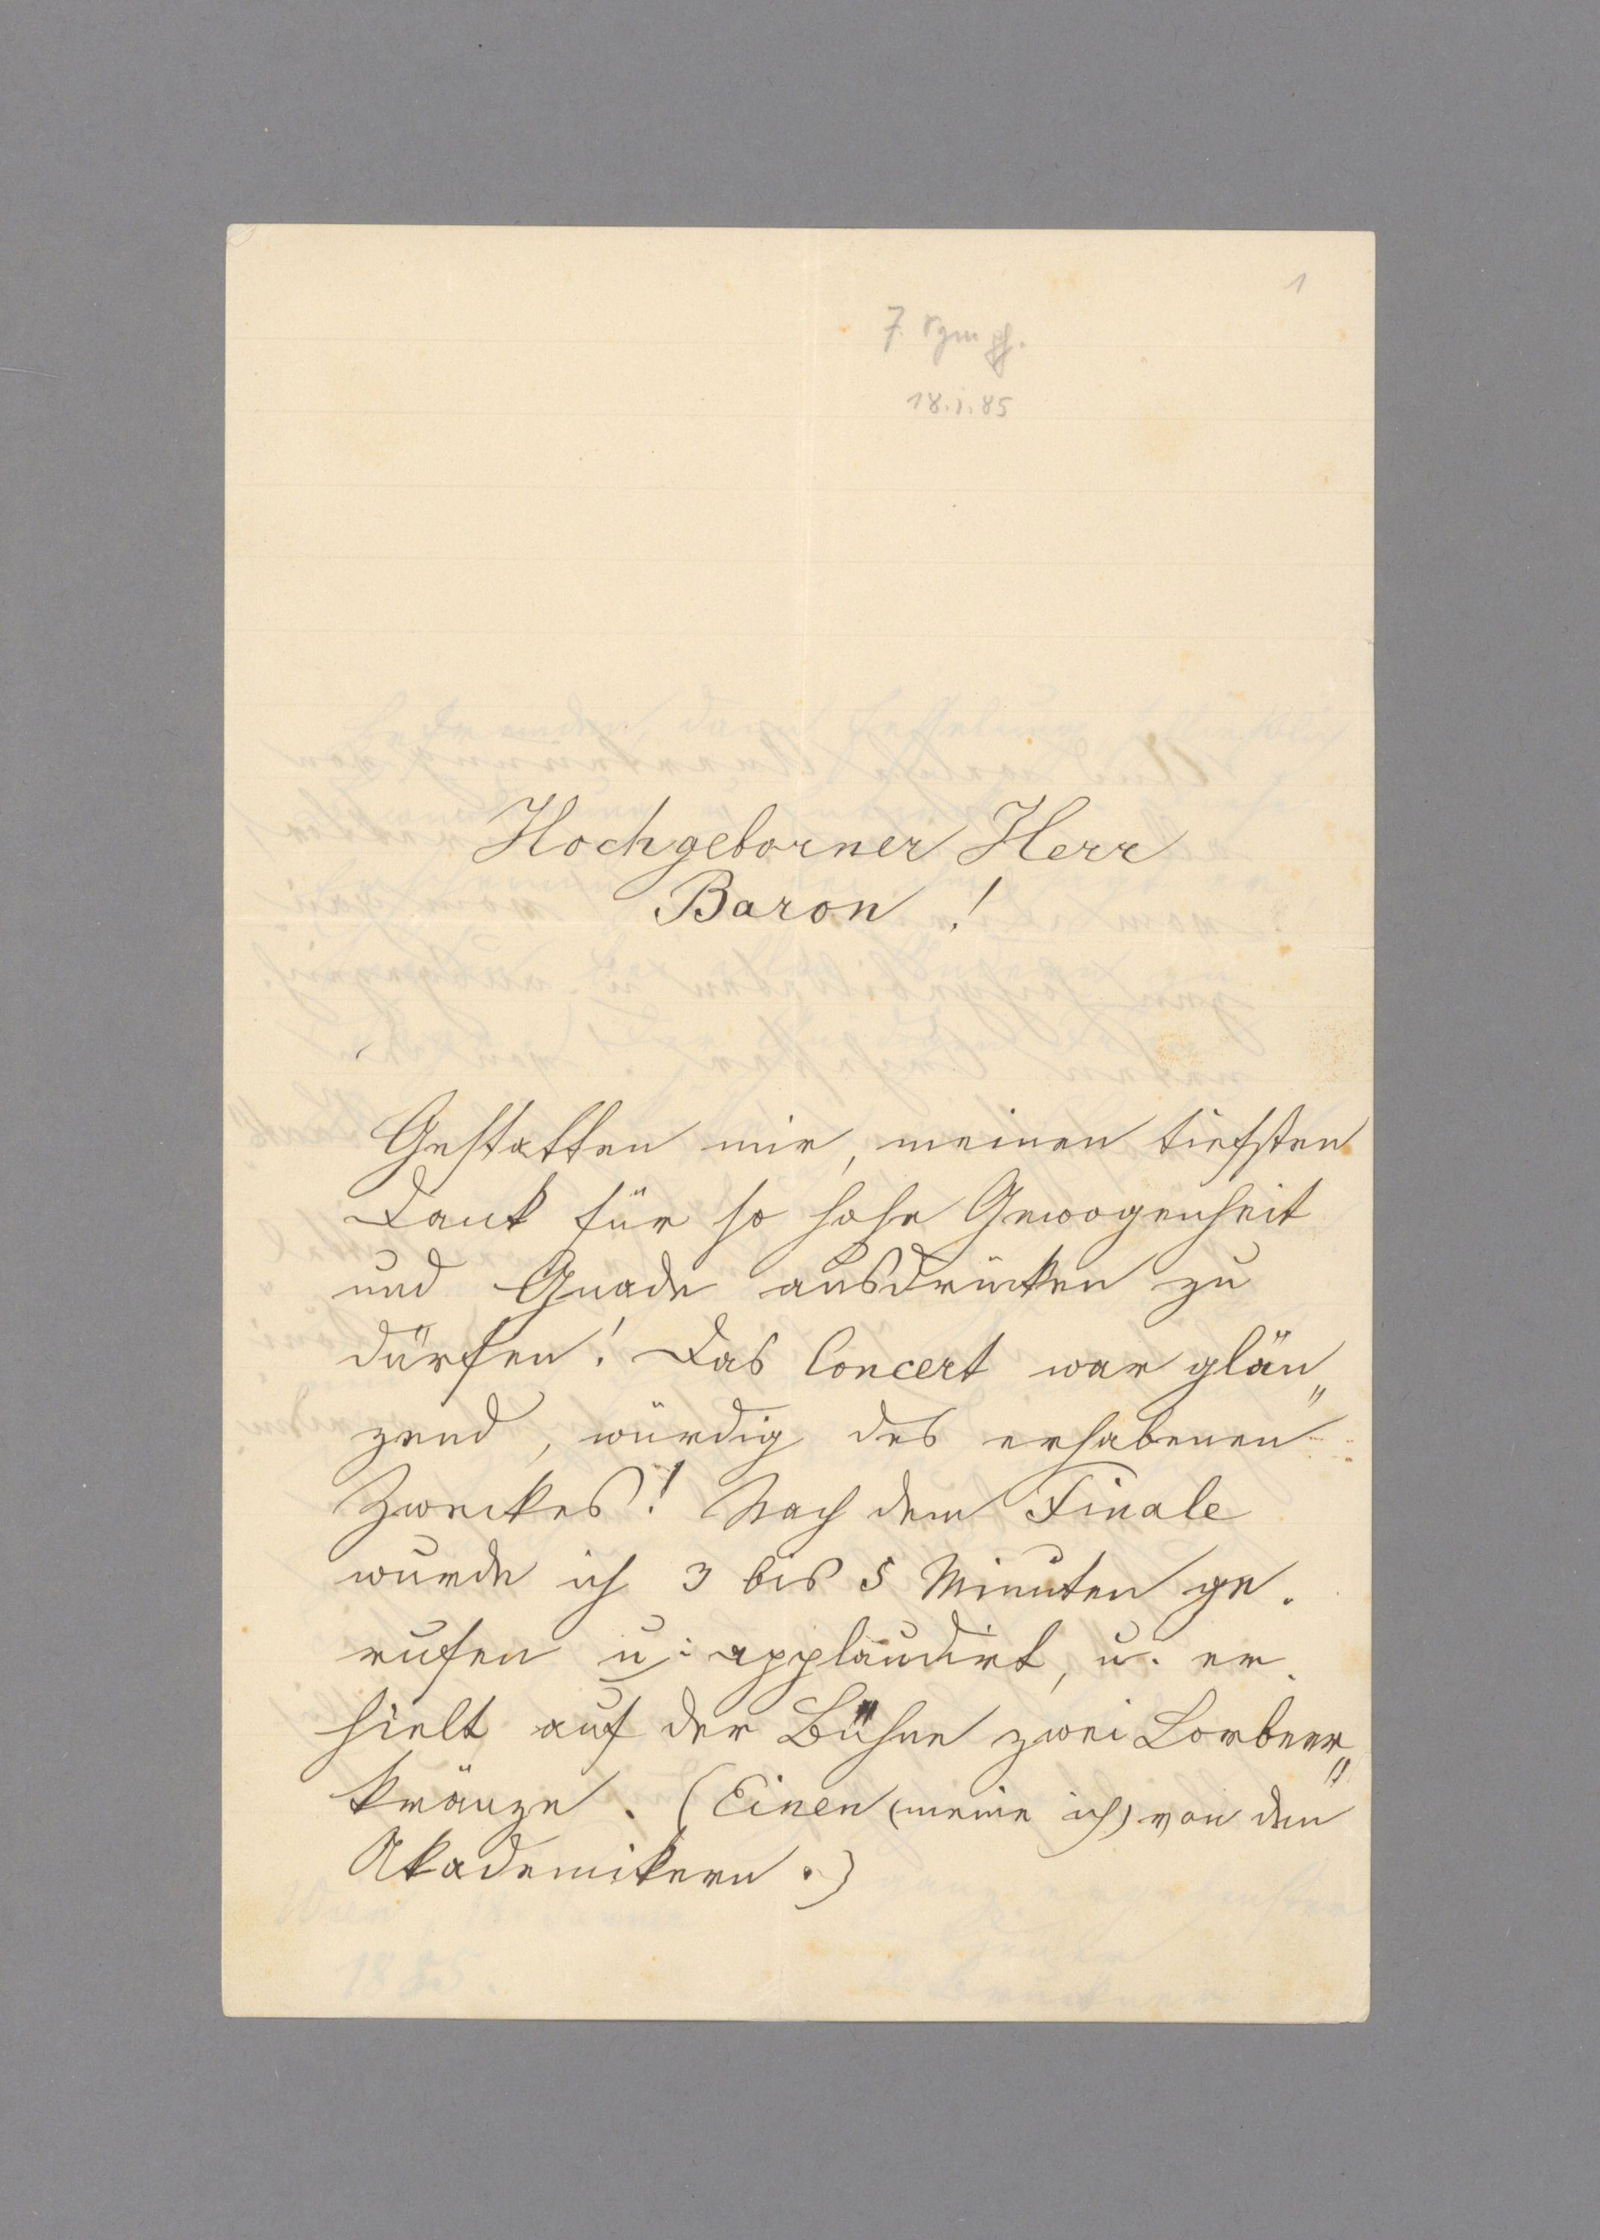 1
18.1.85
Hochgeborner Herr
Baron !
Gestatten mir, meinen tiefsten
Dank für so hohe Gewogenheit
und Gnade ausdrücken zu
dürfen! Das Concert war glän„
zend, würdig des erhabenen
Zweckes! Nach dem Finale
wurde ich 3 bis 5 Minuten ge.
rufen u: applaudirt, u. er.
hielt auf der Bühne zwei Lorbeer„
kränze. (Einen (meine ich) von den
Akademikern.)